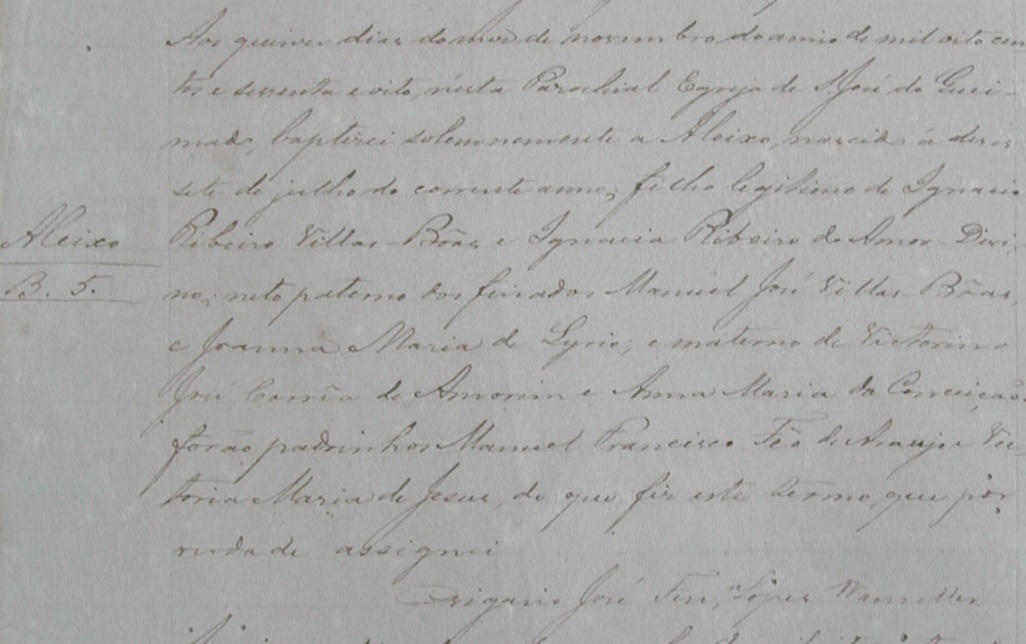 Aos quinze dias do mez de novembro do anno de mil oito cen
tos e sessenta e oito, nésta Parochial Egreja de S. José do Quei-
mado, baptizei solemnemente a Aleixo, nascido á deses
sete de julho do corrente anno, filho legitimo de Ignacio
Aleixo
Ribeiro Villas-Bôas e Ignacia Ribeiro do Amor Divi
B. 5.
no; neto paterno dos finados Manuel José Villas Bôas,
e Joanna Maria de Lyrio; e materno de Victorino
José Corrêa de Amorim e Anna Maria da Conceição
forão padrinhos Manuel Francisco Feo de Araujo e Vic
toria Maria de Jesus, do que fiz este termo, que por
verdade assignei
Vigario José Lopes